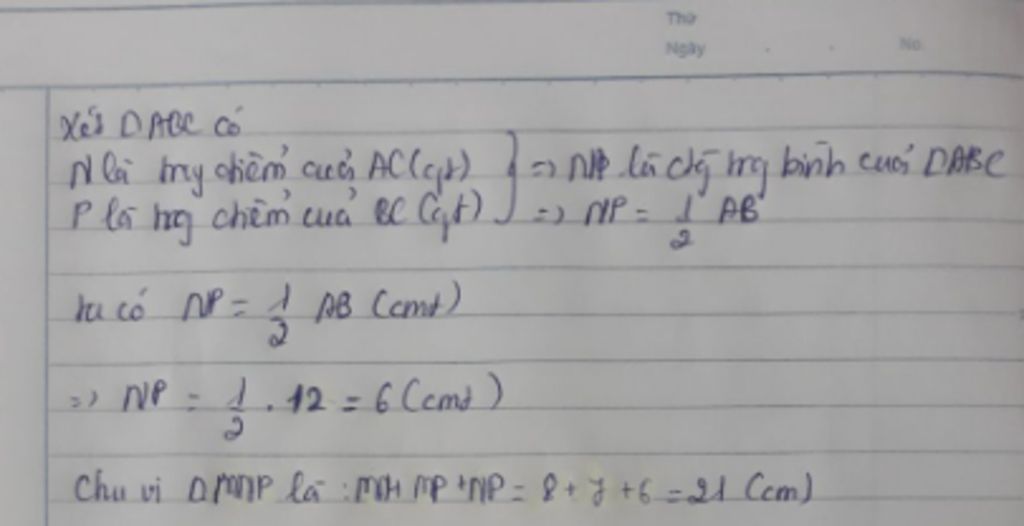 Thứ
Ngày . . No.
Xét ΔABC có
N là trng điểm của AC (gt) } => NP là đg trng bình của ΔABC
P là trng điểm của BC (gt) } => NP = 1/2 AB
ta có NP = 1/2 AB (cmt)
=> NP = 1/2 . 12 = 6 (cmt)
Chu vi ΔMNP là : MN+ MP +NP = 8 + 7 + 6 = 21 (cm)